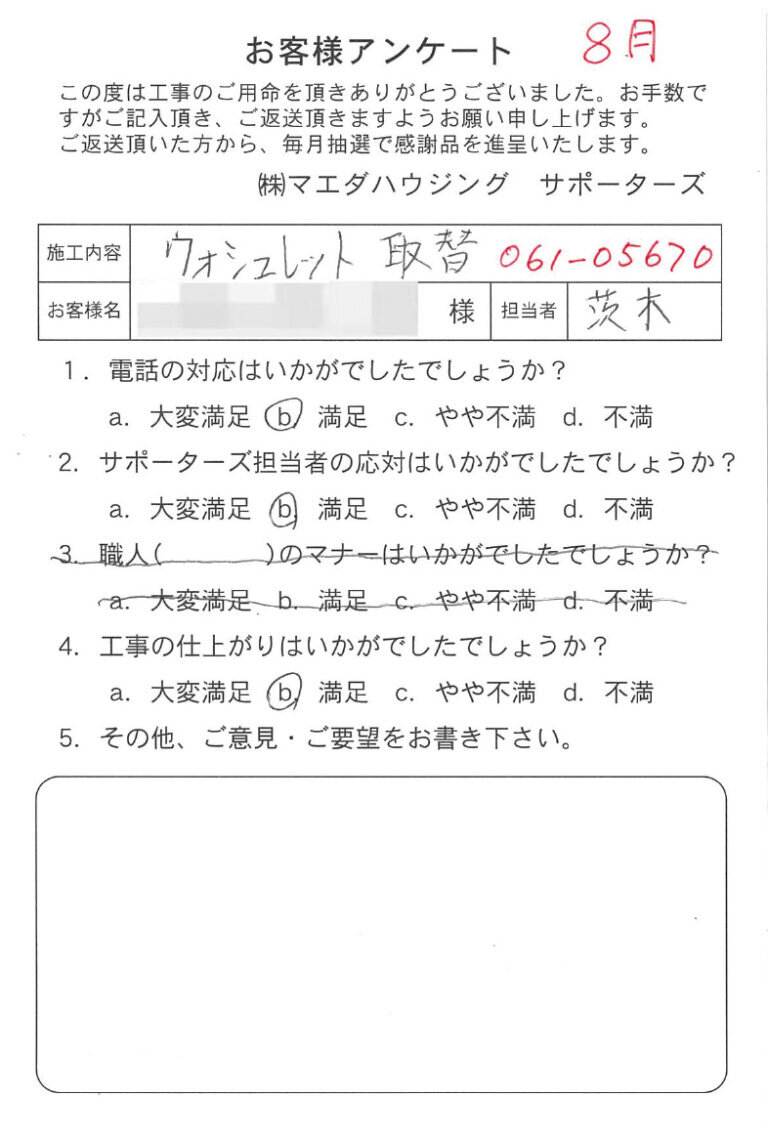 お客様アンケート 8月
この度は工事のご用命を頂きありがとうございました。お手数で
すがご記入頂き、ご返送頂きますようお願い申し上げます。
ご返送頂いた方から、毎月抽選で感謝品を進呈いたします。
㈱マエダハウジング　サポーターズ
施工内容 ウォシュレット 取替 061-05670
お客様名 様 担当者 茨木
1. 電話の対応はいかがでしたでしょうか？
a. 大変満足 b. 満足 c. やや不満 d. 不満
2. サポーターズ担当者の応対はいかがでしたでしょうか？
a. 大変満足 b. 満足 c. やや不満 d. 不満
3. 職人(　　　　)のマナーはいかがでしたでしょうか？
a. 大変満足 b. 満足 c. やや不満 d. 不満
4. 工事の仕上がりはいかがでしたでしょうか？
a. 大変満足 b. 満足 c. やや不満 d. 不満
5. その他、ご意見・ご要望をお書き下さい。